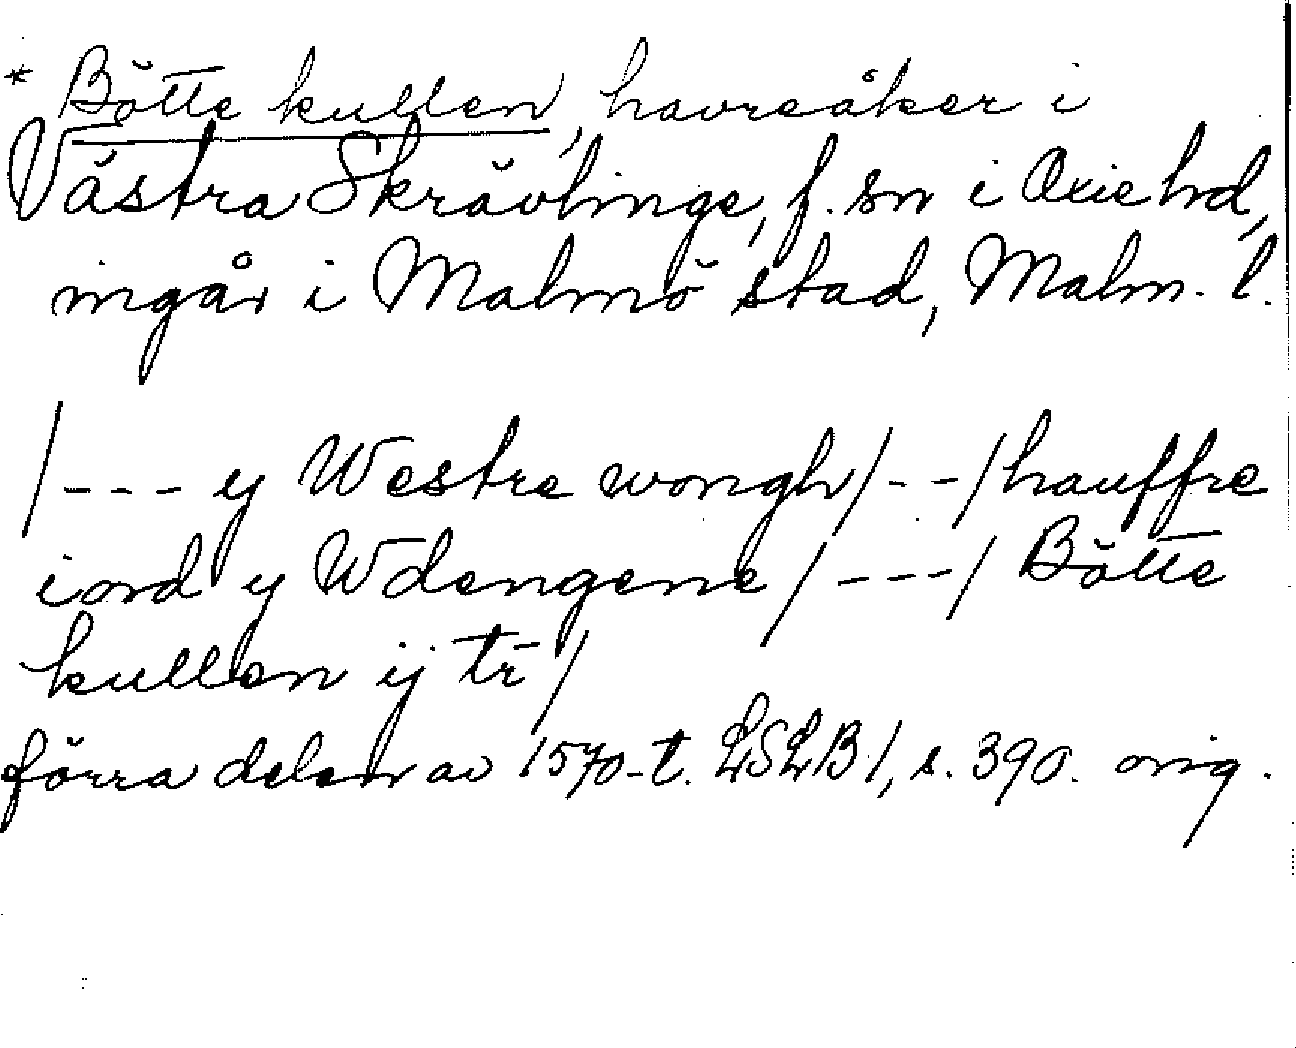 * Bötte kullen, havreåker i
Västra Skrävlinge, f. sn i Oxie hd,
ingår i Malmö stad, Malm. l.
/--- y Westre wongh/--/hauffre
iord y Wdengene/---/ Bötte
kullen ij tr̄/
förra delen av 1570-t. LSLB1, s. 390. orig.